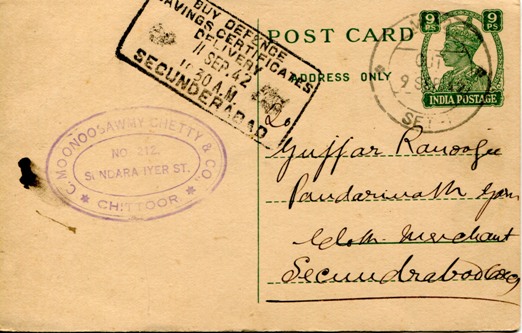 BUY DEFENCE
SAVINGS CERTIFICATES
DELIVERY
11 SEP. 42
10.30 A.M.
SECUNDERABAD
POST CARD
ADDRESS ONLY
9 PS 9 PS
INDIA POSTAGE
OUT
9 SEP
C. MOONOOSAWMY CHETTY & CO.
NO. 312,
SUNDARA IYER ST.
CHITTOOR
To
Guffar
Cloth Merchant
Secundrabad